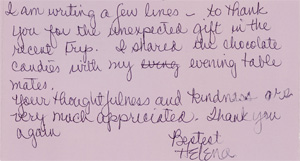 I am writing a few lines - to thank
you for the unexpected gift in the
recent Trip. I shared the chocolate
candies with my evening table
mates.
Your thoughtfulness and kindness are
very much appreciated. Thank you
again
Bestest
HELENA